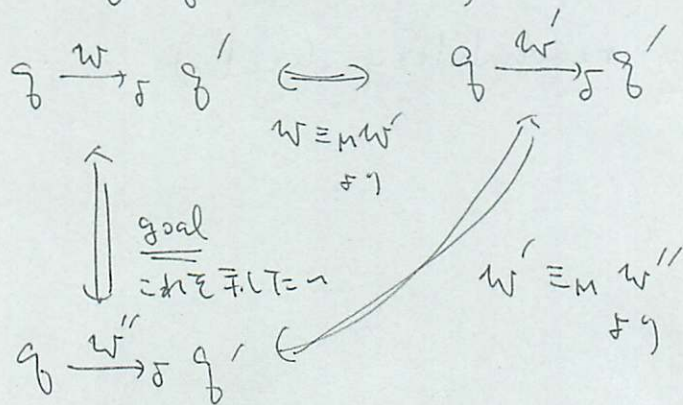 q →^w_δ q' ⟺ q →^{w'}_δ q'
w ≡_M w'
より
goal
これを示したい
w' ≡_M w''
より
q →^{w''}_δ q'